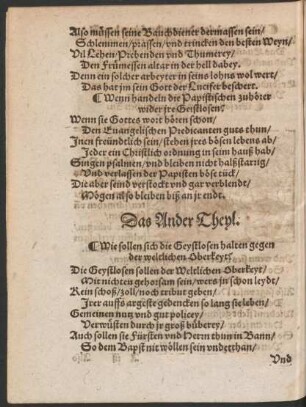 Also müssen seine Bauchdiener dermassen sein/
Schlemmen/prassen/vnd trincken den besten Weyn/
Vil Lehen/Prebenden vnd Thumerey/
Den Frümessen altar in der hell dabey.
Denn ein solcher arbeyter in seins lohns wol wert/
Das hat jm sein Gott der Lucifer beschert.
¶ Wenn handeln die Papistischen zuhörer
wider jre Geystlosen?
Wenn sie Gottes wort hören schon/
Den Euangelischen Predicanten guts thun/
Jnen freündtlich sein/stehen jres bösen lebens ab/
Jeder ein Christlich ordnung in seim hauß hab/
Singen psalmen/vnd bleiben nicht halßstarrig/
Vnd verlassen der Papisten böse tück/
Die aber seind verstockt vnd gar verblendt/
Mögen also bleiben biß an jr endt.
Das Ander Theyl.
¶ Wie sollen sich die Geystlosen halten gegen
der weltlichen Oberkeyt?
Die Geystlosen sollen der Weltlichen Oberkeyt/
Mit nichten gehorsam sein/wers jn schon leydt/
Kein schoß/zoll/noch tribut geben/
Jrer auffs ärgiste gedencken so lang sie leben/
Gemeinen nutz vnd gut policey/
Verwüsten durch jr groß büberey/
Auch sollen sie Fürsten vnd Herrn thun in Bann/
So dem Bapst nit wöllen sein vnderthan/
Vnd